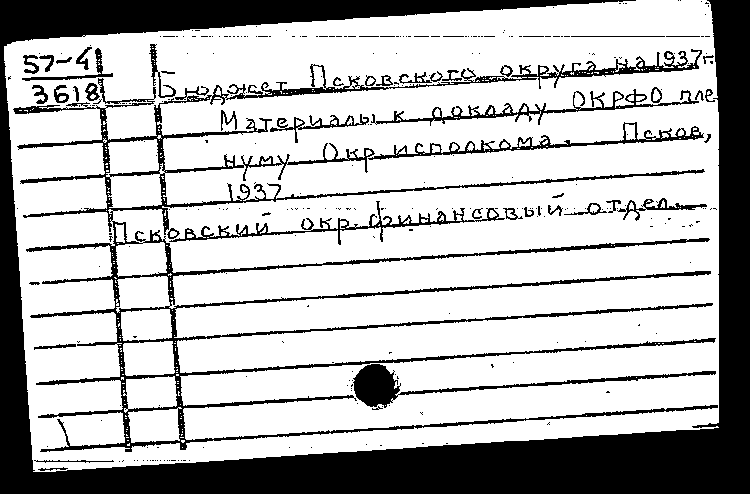 57-4
3618
Бюджет Псковского округа на 1937 г.
Материалы к докладу ОКРФО пле
нуму Окр.исполкома. Псков,
1937.
Псковский окр.финансовый отдел.